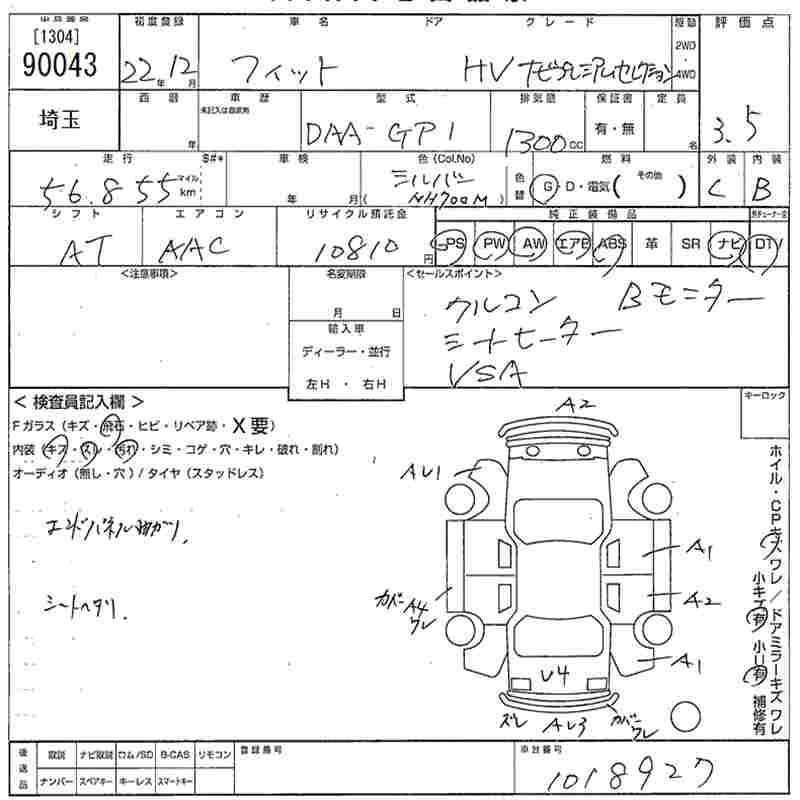 [1304]
90043
初度登録 車名 ドア グレード 原動 評価点
22年 12月 フィット HV ナビプレミアムセレクション 2WD 4WD
3.5
埼玉
西暦 年 車歴 未記入は自家用 型式 排気量 保証書 定員
DAA-GP1 1300cc 有・無 名
走行 S#* 車検 色(Col.No) 燃料 外装 内装
56.855 マイル km 年 月 シルバー ( NH700M ) 色替 G・D・電気( その他 ) C B
シフト エアコン リサイクル預託金 純正装備品
AT AAC 10810円 PS PW AW エアB ABS 革 SR ナビ DT/
<注意事項> 名変期限 <セールスポイント>
月 日
クルコン Bモニター
シートヒーター
VSA
輸入車
ディーラー・並行
左H ・ 右H
< 検査員記入欄 > キーロック
Fガラス (キズ・飛石・ヒビ・リペア跡・X要)
内装 (キズ・スレ・汚れ・シミ・コゲ・穴・キレ・破れ・割れ)
オーディオ (無し・穴) / タイヤ (スタッドレス)
エンドパネル曲がり.
シートヘタリ.
A2
AU1
A1
カバー ワレ A4
A2
A1
U4
ズレ AU3 カバー ワレ
ホイル・CPキズワレ/ドアミラーキズワレ
小キズ有 小U有 補修有
後送品 取説 ナビ取説 ロム/SD B-CAS リモコン
ナンバー スペアキー キーレス スマートキー
登録番号
車台番号
1018927